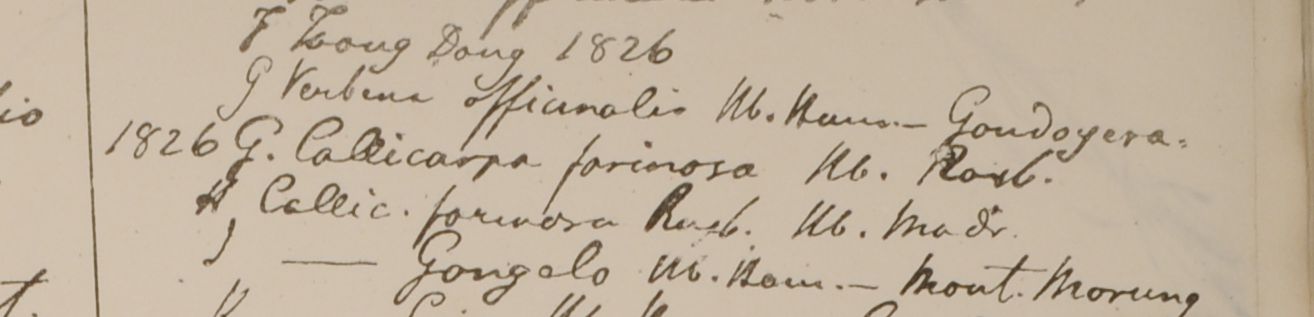 F Tzong Dong 1826
G Verbena officinalis Hb. Ham. — Gondoyera.
1826 G. Callicarpa farinosa Hb. Roxb.
H Callic. farinosa Roxb. Hb. Madr.
J — Gongolo Hb. Ham. — Mont. Morung